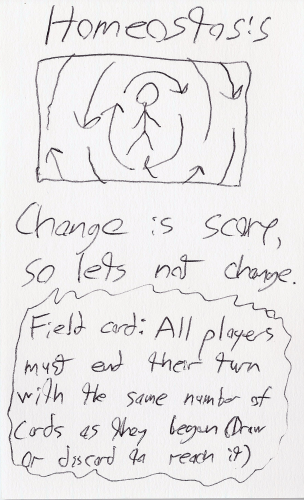 Homeostasis
Change is scary,
so lets not change.
Field card: All players
must end their turn
with the same number of
cards as they began (Draw
or discard to reach it)